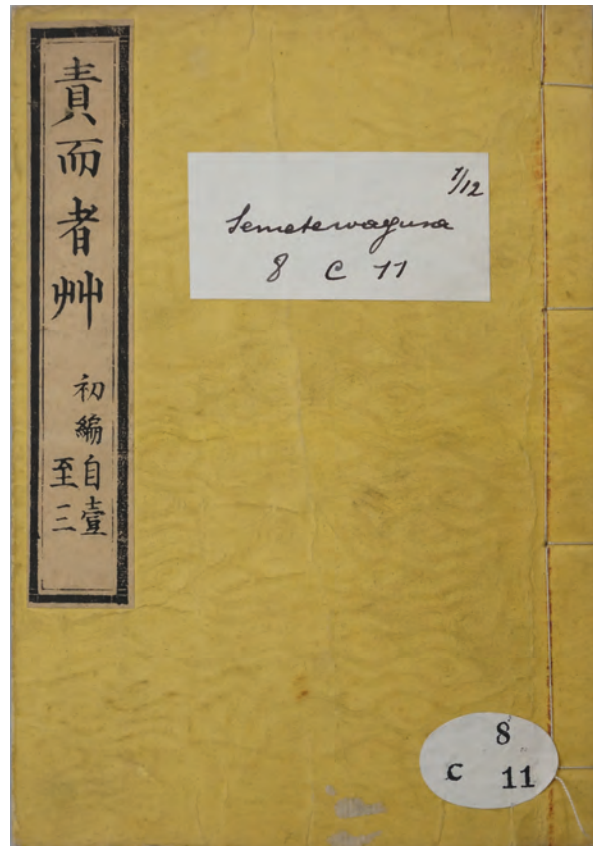 責而者艸
初編自壹
至三
1/12
Semetewagusa
8 C 11
8
C 11